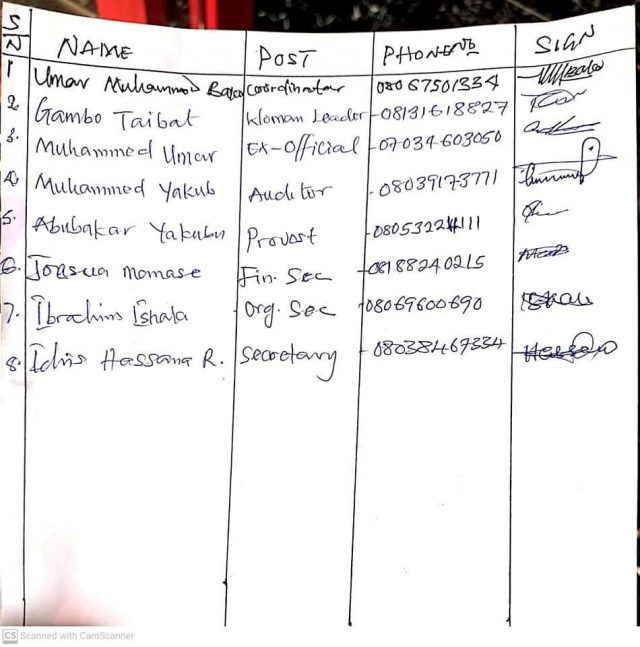 S/N NAME POST PHONE NO SIGN
1 Umar Muhammad Coordinator 08067501334
2. Gambo Taibat Woman Leader -08131618827
3. Muhammed Umar EX-Official -07034603050
4. Muhammed Yakub Auditor -08039173771
5. Abubakar Yakubu Provost
6. Momase Fin. Sec -08188240215
7. Ibrahim Ishala Org. Sec 08069600690
8. Idris Hassana R. Secretary -08038467334
CS Scanned with CamScanner